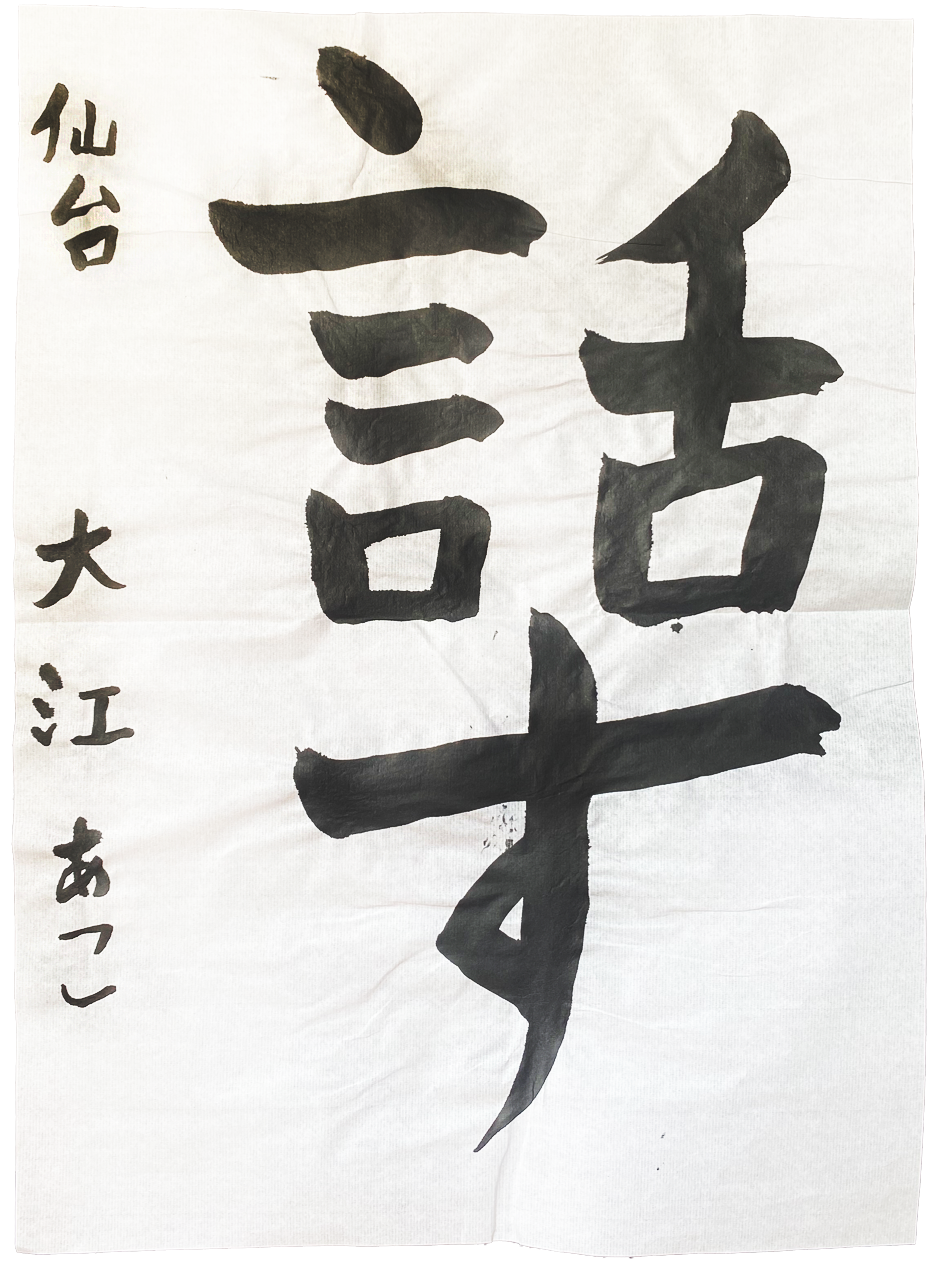 話す
仙台 大江 あつこ